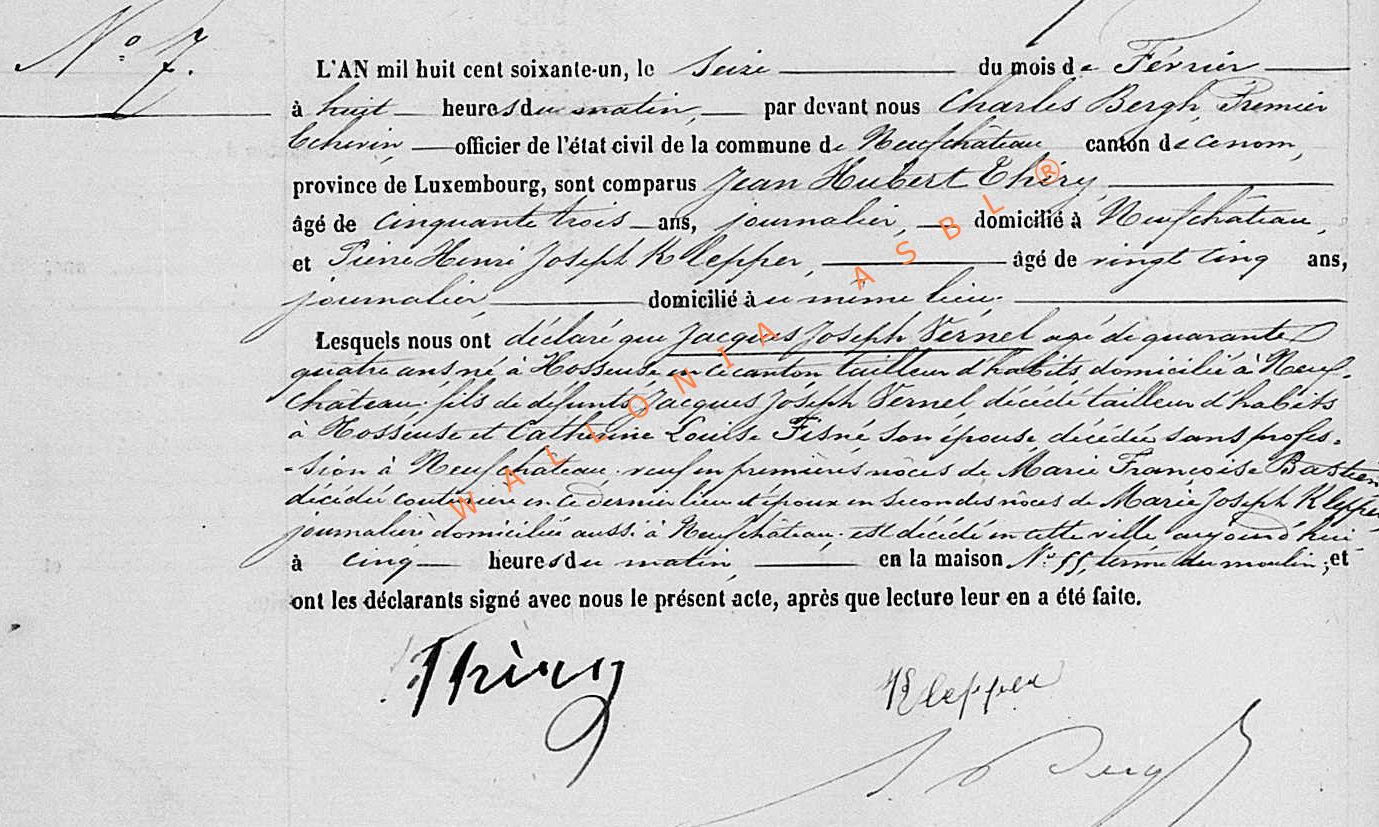 N° 7.
L'AN mil huit cent soixante-un, le Seize du mois de Février
à huit heures du matin, par devant nous Charles Bergh, Premier
Echevin, officier de l'état civil de la commune de Neufchâteau canton de ce nom,
province de Luxembourg, sont comparus Jean Hubert Thiry,
âgé de cinquante trois ans, journalier, domicilié à Neufchâteau,
et Pierre Henri Joseph Klepper, âgé de vingt cinq ans,
journalier domicilié à u même lieu.
Lesquels nous ont déclaré que Jacques Joseph Vernel agé de quarante
quatre ans né à Hosseuse en ce canton tailleur d'habits domicilié à Neuf-
château. fils de défunts Jacques Joseph Vernel décédé tailleur d'habits
à Hosseuse et Catherine Louise Fisné son épouse décédée sans profes-
-sion à Neufchâteau. veuf en premières nôces de Marie Françoise Bastien
décédée couturière en ce dernier lieu et époux en secondes nôces de Marie Joseph Klepper
journalière domiciliée aussi à Neufchâteau. est décédé en cette ville aujourd'hui
à cinq heures du matin, en la maison N° 55 terme du moulin ; et
ont les déclarants signé avec nous le présent acte, après que lecture leur en a été faite.
Thiry
Klepper
Bergh
WALLONIA ASBL ®